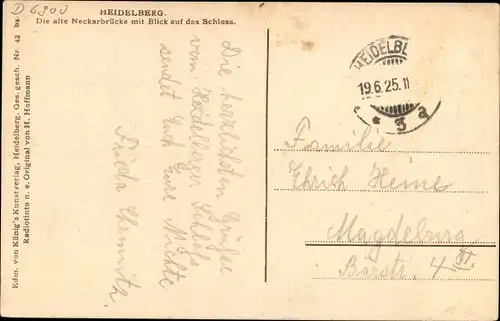 D 6900
HEIDELBERG.
Die alte Neckarbrücke mit Blick auf das Schloss.
Edm. von König's Kunstverlag, Heidelberg. Ges. gesch. Nr. 42 bs.
Radiotinto n. e. Original von H. Hoffmann
Die herzlichsten Grüße
vom Heidelberger Schloß
sendet Euch Eure Nichte
Frieda Chemnitz.
HEIDELB
19.6.25.11
* 3 a
Familie
Ehrich Heine
Magdeburg
4 III.